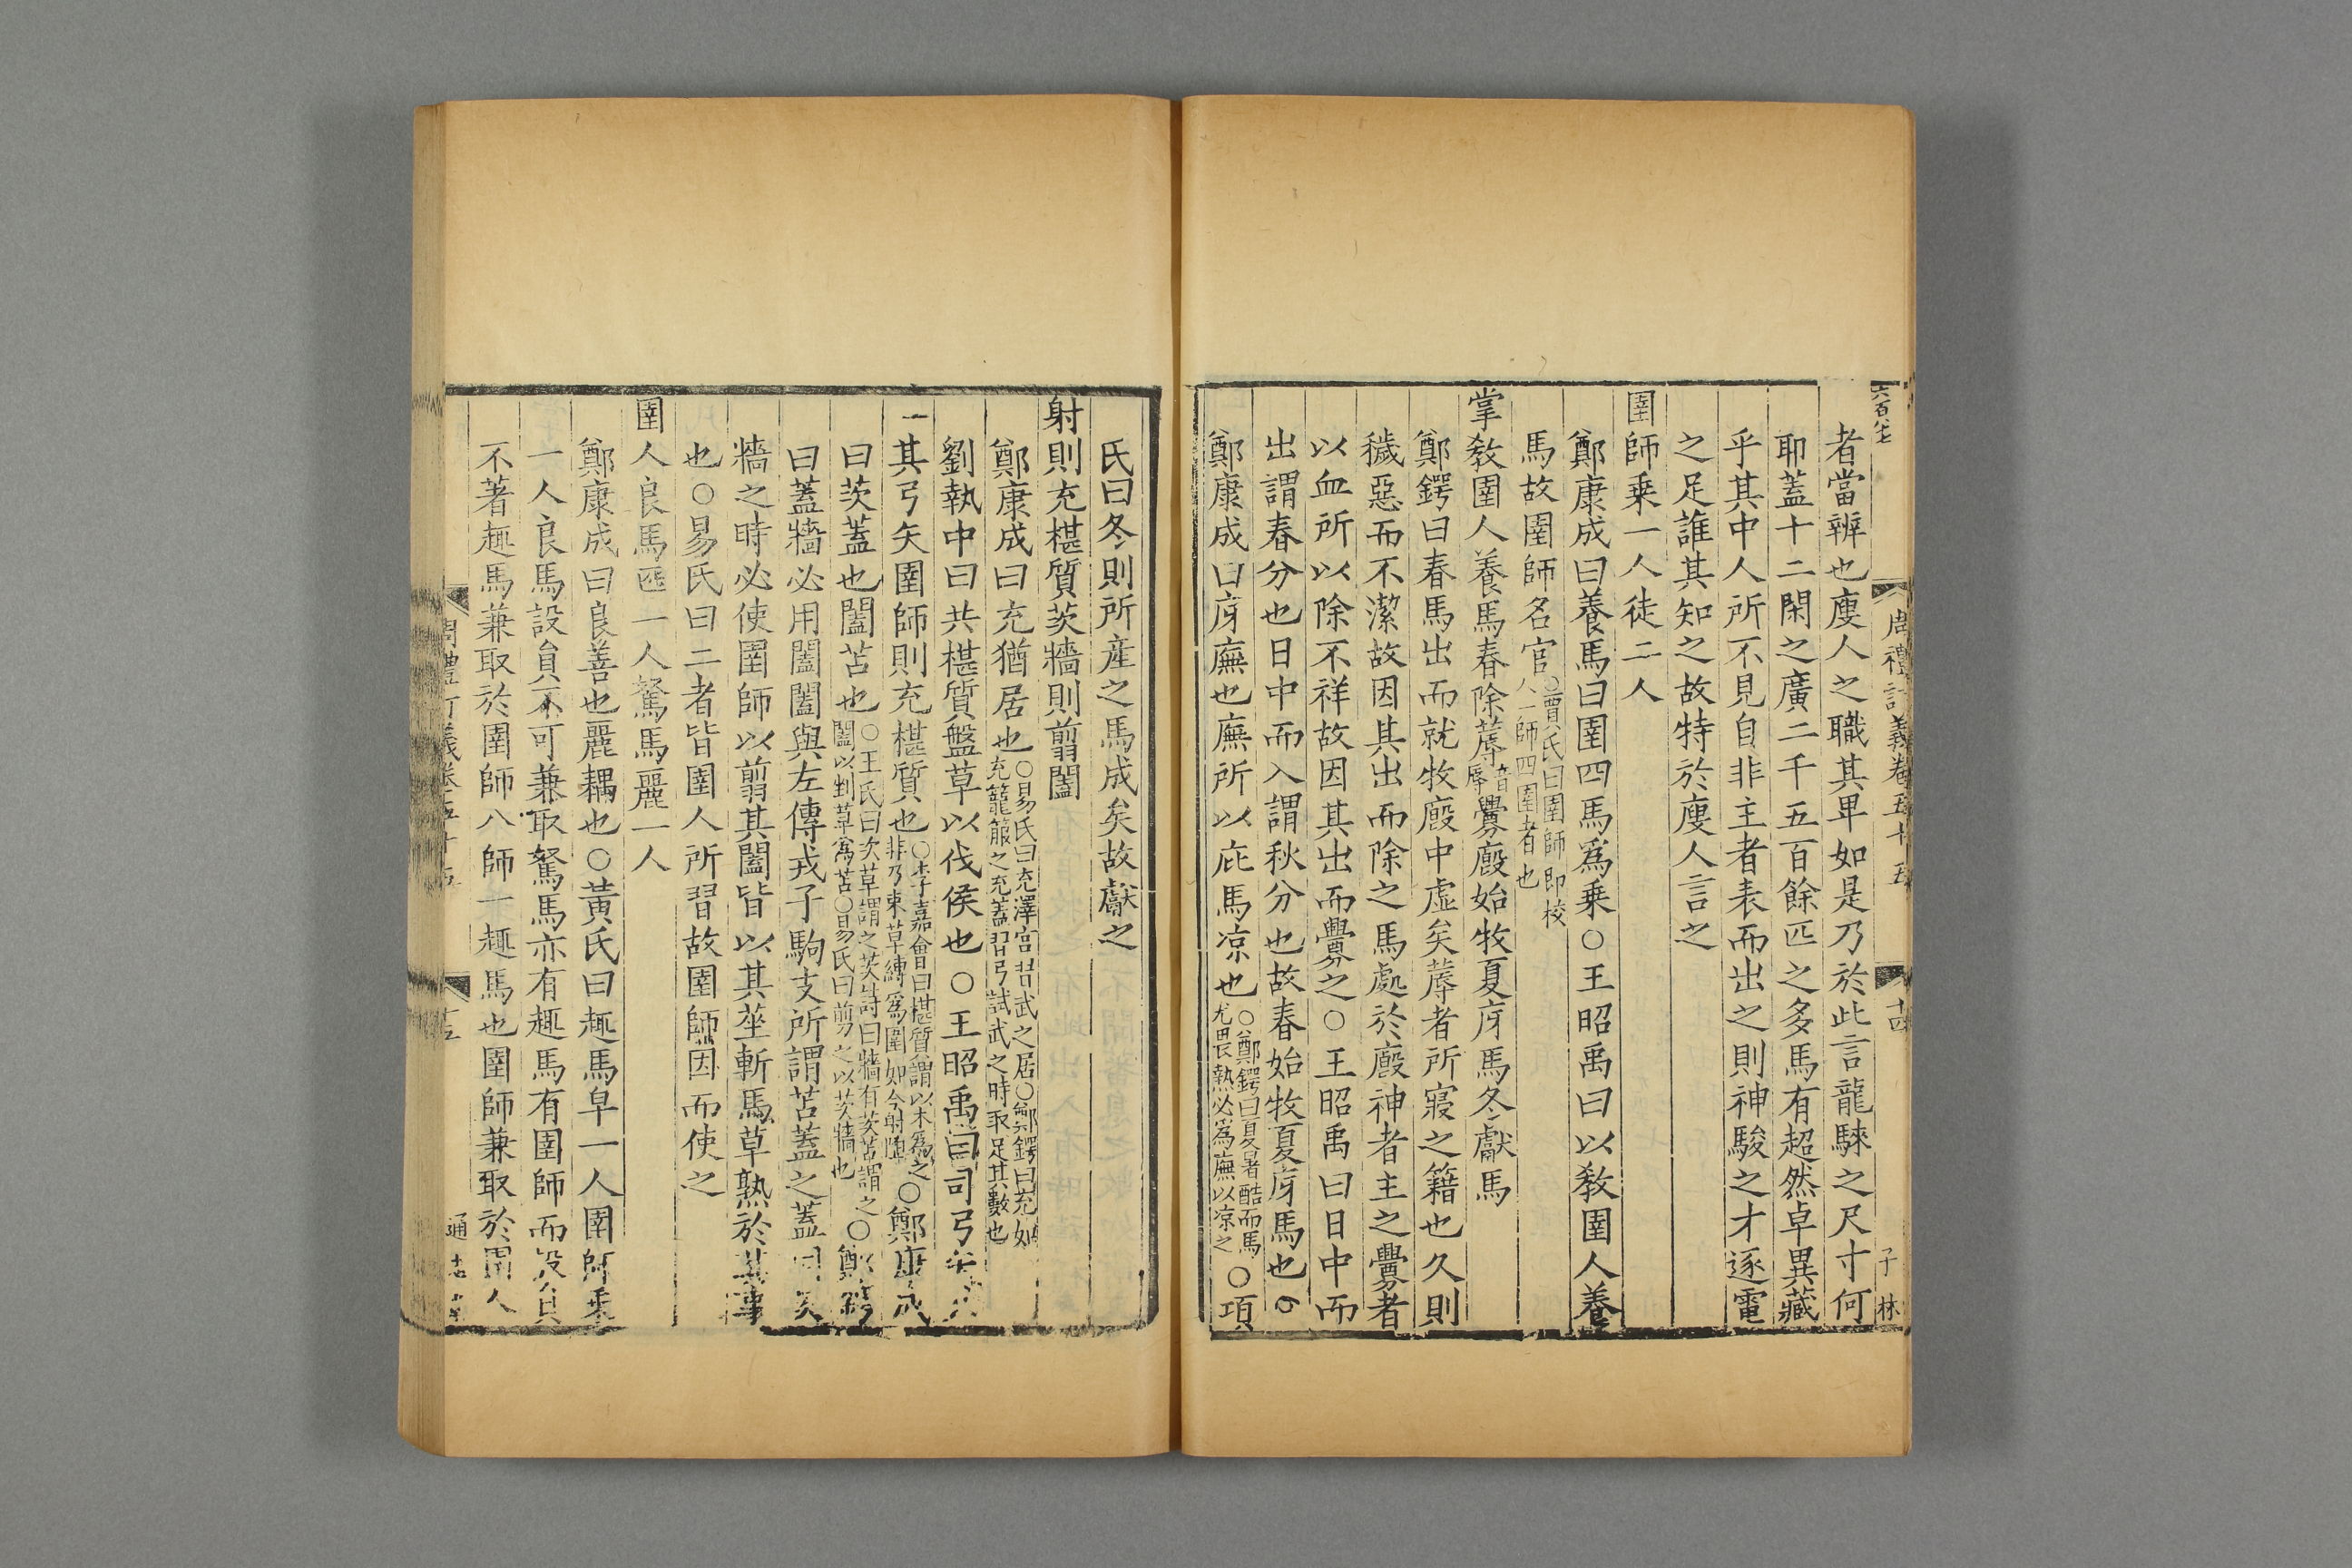 六百七
周禮訂義卷五十五
十四
子林
者當辨也廋人之職其畢如是乃於此言龍騋之尺寸何
耶蓋十二閑之廣二千五百餘匹之多馬有超然卓異藏
乎其中人所不見自非主者表而出之則神駿之才逐電
之足誰其知之故特於廋人言之
圉師乗一人徒二人
鄭康成曰養馬曰圉四馬爲乗○王昭禹曰以敎圉人養
馬故圉師名官○賈氏曰圉師即校人一師四圉者也
掌敎圉人養馬春除蓐音辱釁廏始牧夏庌馬冬獻馬
鄭鍔曰春馬出而就牧廏中虛矣蓐者所寢之籍也久則
穢惡而不潔故因其出而除之馬處於廏神者主之釁者
以血所以除不祥故因其出而釁之○王昭禹曰日中而
出謂春分也日中而入謂秋分也故春始牧夏庌馬也○
鄭康成曰庌廡也廡所以庇馬凉也○鄭鍔曰夏暑酷而馬尤畏熱必爲廡以凉之○項
氏曰冬則所産之馬成矣故獻之
射則充椹質茨墻則翦闔
鄭康成曰充猶居也○易氏曰充澤宫習武之居○鄭鍔曰充如充籠箙之充蓋習弓試武之時取足其數也
劉執中曰共椹質盤草以伐侯也○王昭禹曰司弓矢共
其弓矢圉師則充椹質也○李嘉會曰椹質謂以木爲之非乃束草縛爲圉如今射○鄭康成
曰茨蓋也闔苫也○王氏曰次草謂之茨詩曰墻有茨苫謂之闔以剉草爲苫○易氏曰翦之以茨墻也○鄭鍔
曰蓋墻必用闔闔與左傳戎子駒支所謂苫蓋之蓋同茨
墻之時必使圉師以翦其闔皆以其莝斬馬草熟於其事
也○易氏曰二者皆圉人所習故圉師因而使之
圉人良馬匹一人駑馬麗一人
鄭康成曰良善也麗耦也○黃氏曰趣馬皁一人圉師乗
一人良馬設負不可兼取駑馬亦有趣馬有圉師而設負
不著趣馬兼取於圉師八師一趣馬也圉師兼取於圉人
周禮訂義卷五十五
十五
通志堂